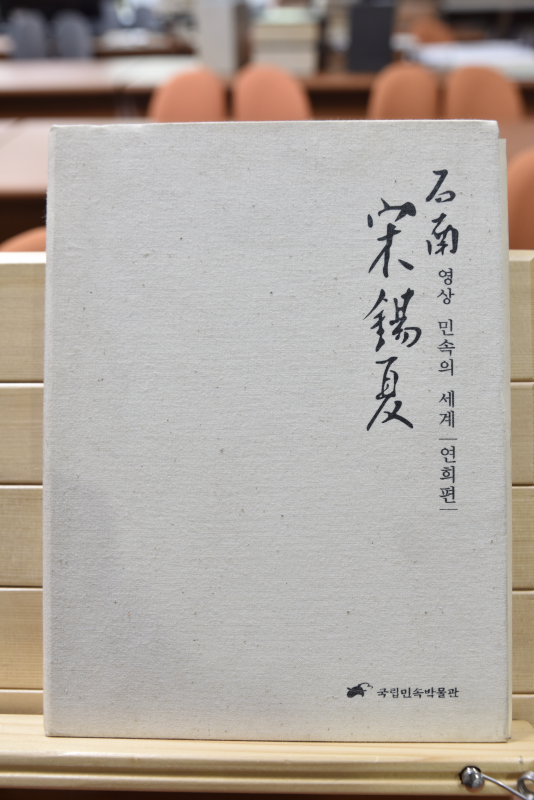 石南
宋錫夏
영상 민속의 세계 |연희편|
국립민속박물관